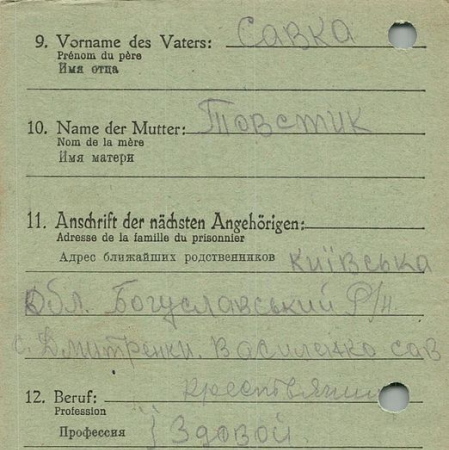 9. Vorname des Vaters: Савка
Prénom du père
Имя отца
10. Name der Mutter: Товстик
Nom de la mère
Имя матери
11. Anschrift der nächsten Angehörigen:
Adresse de la famille du prisonnier
Адрес ближайших родственников Київська
Обл. Богуславський р/н.
с. Дмитренки. Василенко сав
12. Beruf:
Profession
Профессия